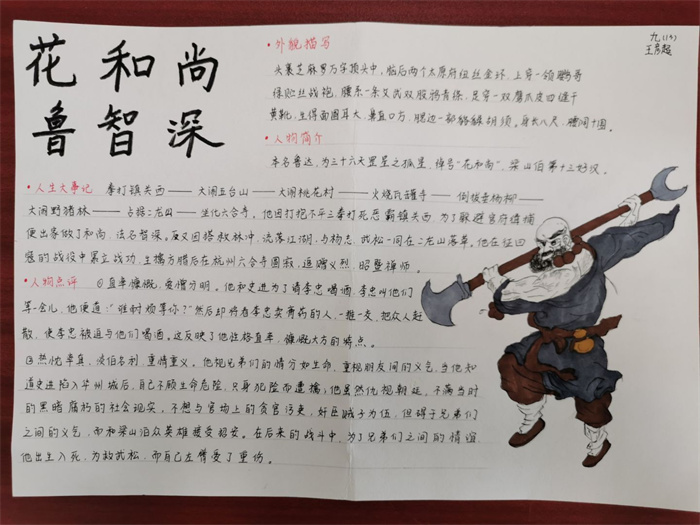 花和尚
鲁智深
九(13)
王彦超
·外貌描写
头裹芝麻罗万字顶头巾,脑后两个太原府纽丝金环,上穿一领鹦哥
绿贮丝战袍,腰系一条文武双股鸦青绦,足穿一双鹰爪皮四缝干
黄靴,生得面圆耳大,鼻直口方,腮边一部貉貅胡须。身长八尺,腰阔十围。
·人物简介
本名鲁达,为三十六天罡星之孤星,绰号“花和尚”,梁山伯第十三好汉。
·人生大事记 拳打镇关西——大闹五台山——大闹桃花村——火烧瓦罐寺——倒拔垂杨柳——
大闹野猪林——占据二龙山——坐化六合寺。他因打抱不平三拳打死恶霸镇关西,为了躲避官府缉捕
便出家做了和尚,法名智深。后又因搭救林冲,流落江湖,与杨志、武松一同在二龙山落草。他在征四
寇的战役中累立战功,生擒方腊后在杭州六合寺圆寂,追赠义烈昭暨禅师。
·人物点评 ①直率慷慨,爱憎分明。他和史进为了请李忠喝酒,李忠叫他们
等一会儿,他便道:“谁耐烦等你?”然后即将看李忠卖膏药的人,一推一交,把众人赶
散,使李忠被迫与他们喝酒。这反映了他性格直率、慷慨大方的特点。
②热忱率真,淡泊名利,重情重义。他视兄弟们的情分如生命,重视朋友间的义气,当他知
道史进陷入华州城后,自己不顾生命危险,只身犯险而遭擒;他虽然仇视朝廷,不满当时
的黑暗腐朽的社会现实,不想与官场上的贪官污吏、奸臣贼子为伍,但碍于兄弟们
之间的义气,而和梁山伯众英雄接受招安。在后来的战斗中,为了兄弟们之间的情谊,
他出生入死,为救武松,而自己左臂受了重伤。